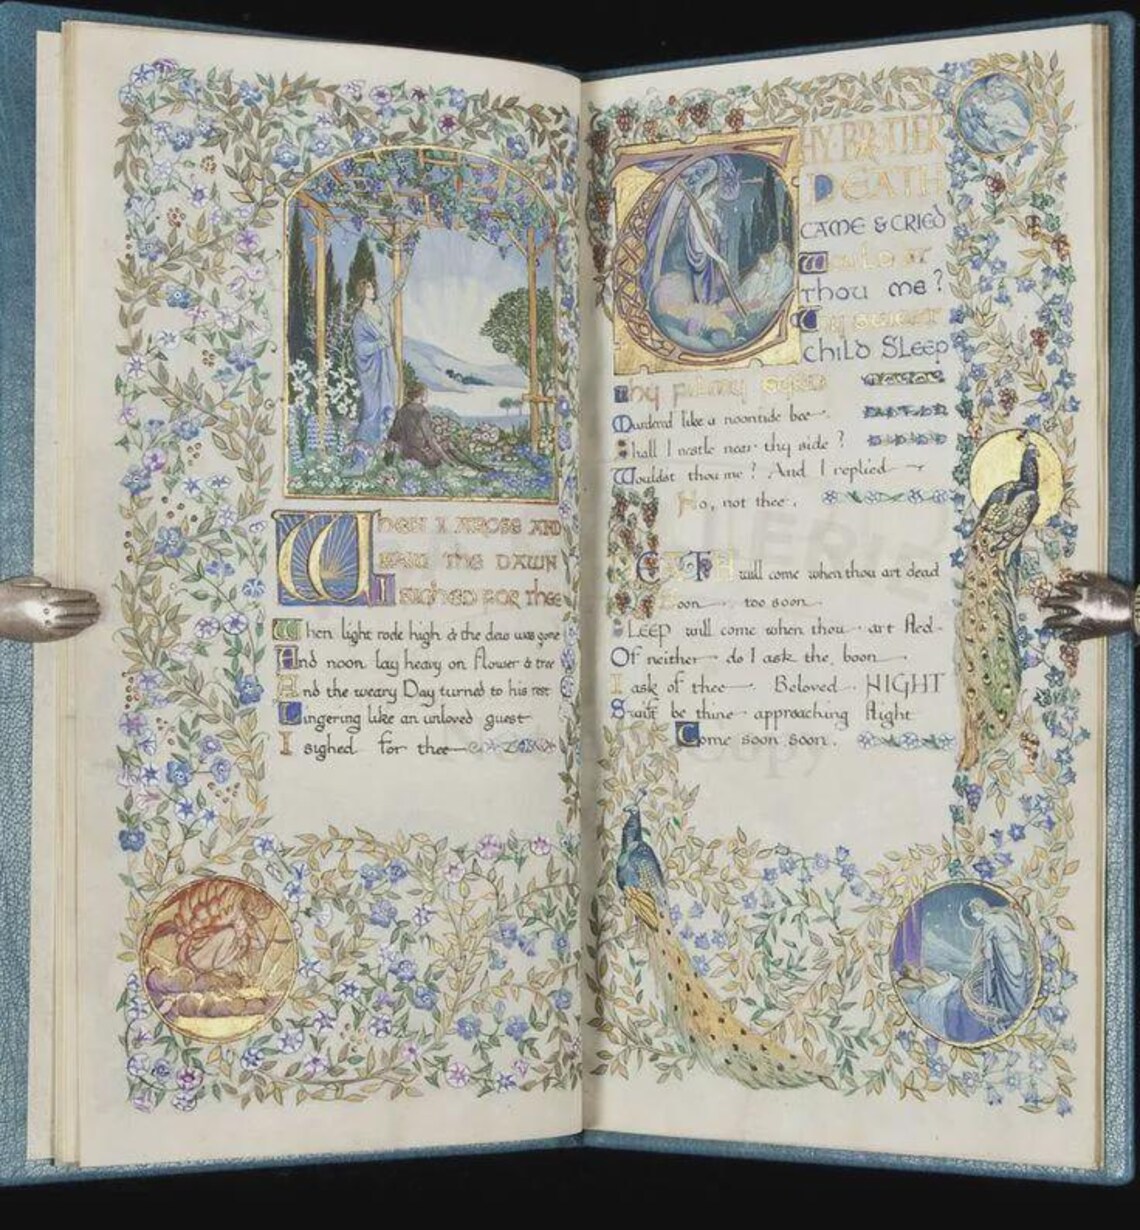 WHEN I AROSE AND
SAW THE DAWN
I SIGHED FOR thee
When light rode high & the dew was gone
And noon lay heavy on flower & tree
And the weary Day turned to his rest
Lingering like an unloved guest
I sighed for thee
THY BROTHER
DEATH
CAME & CRIED
Wouldst
thou me?
Thy sweet
child Sleep
Thy filmy eyed
Murmured like a noontide bee
Shall I nestle near thy side?
Wouldst thou me? And I replied
No, not thee.
DEATH will come when thou art dead
Soon too soon
SLEEP will come when thou art fled
Of neither do I ask the boon
I ask of thee Beloved NIGHT
Swift be thine approaching flight
Come soon soon.